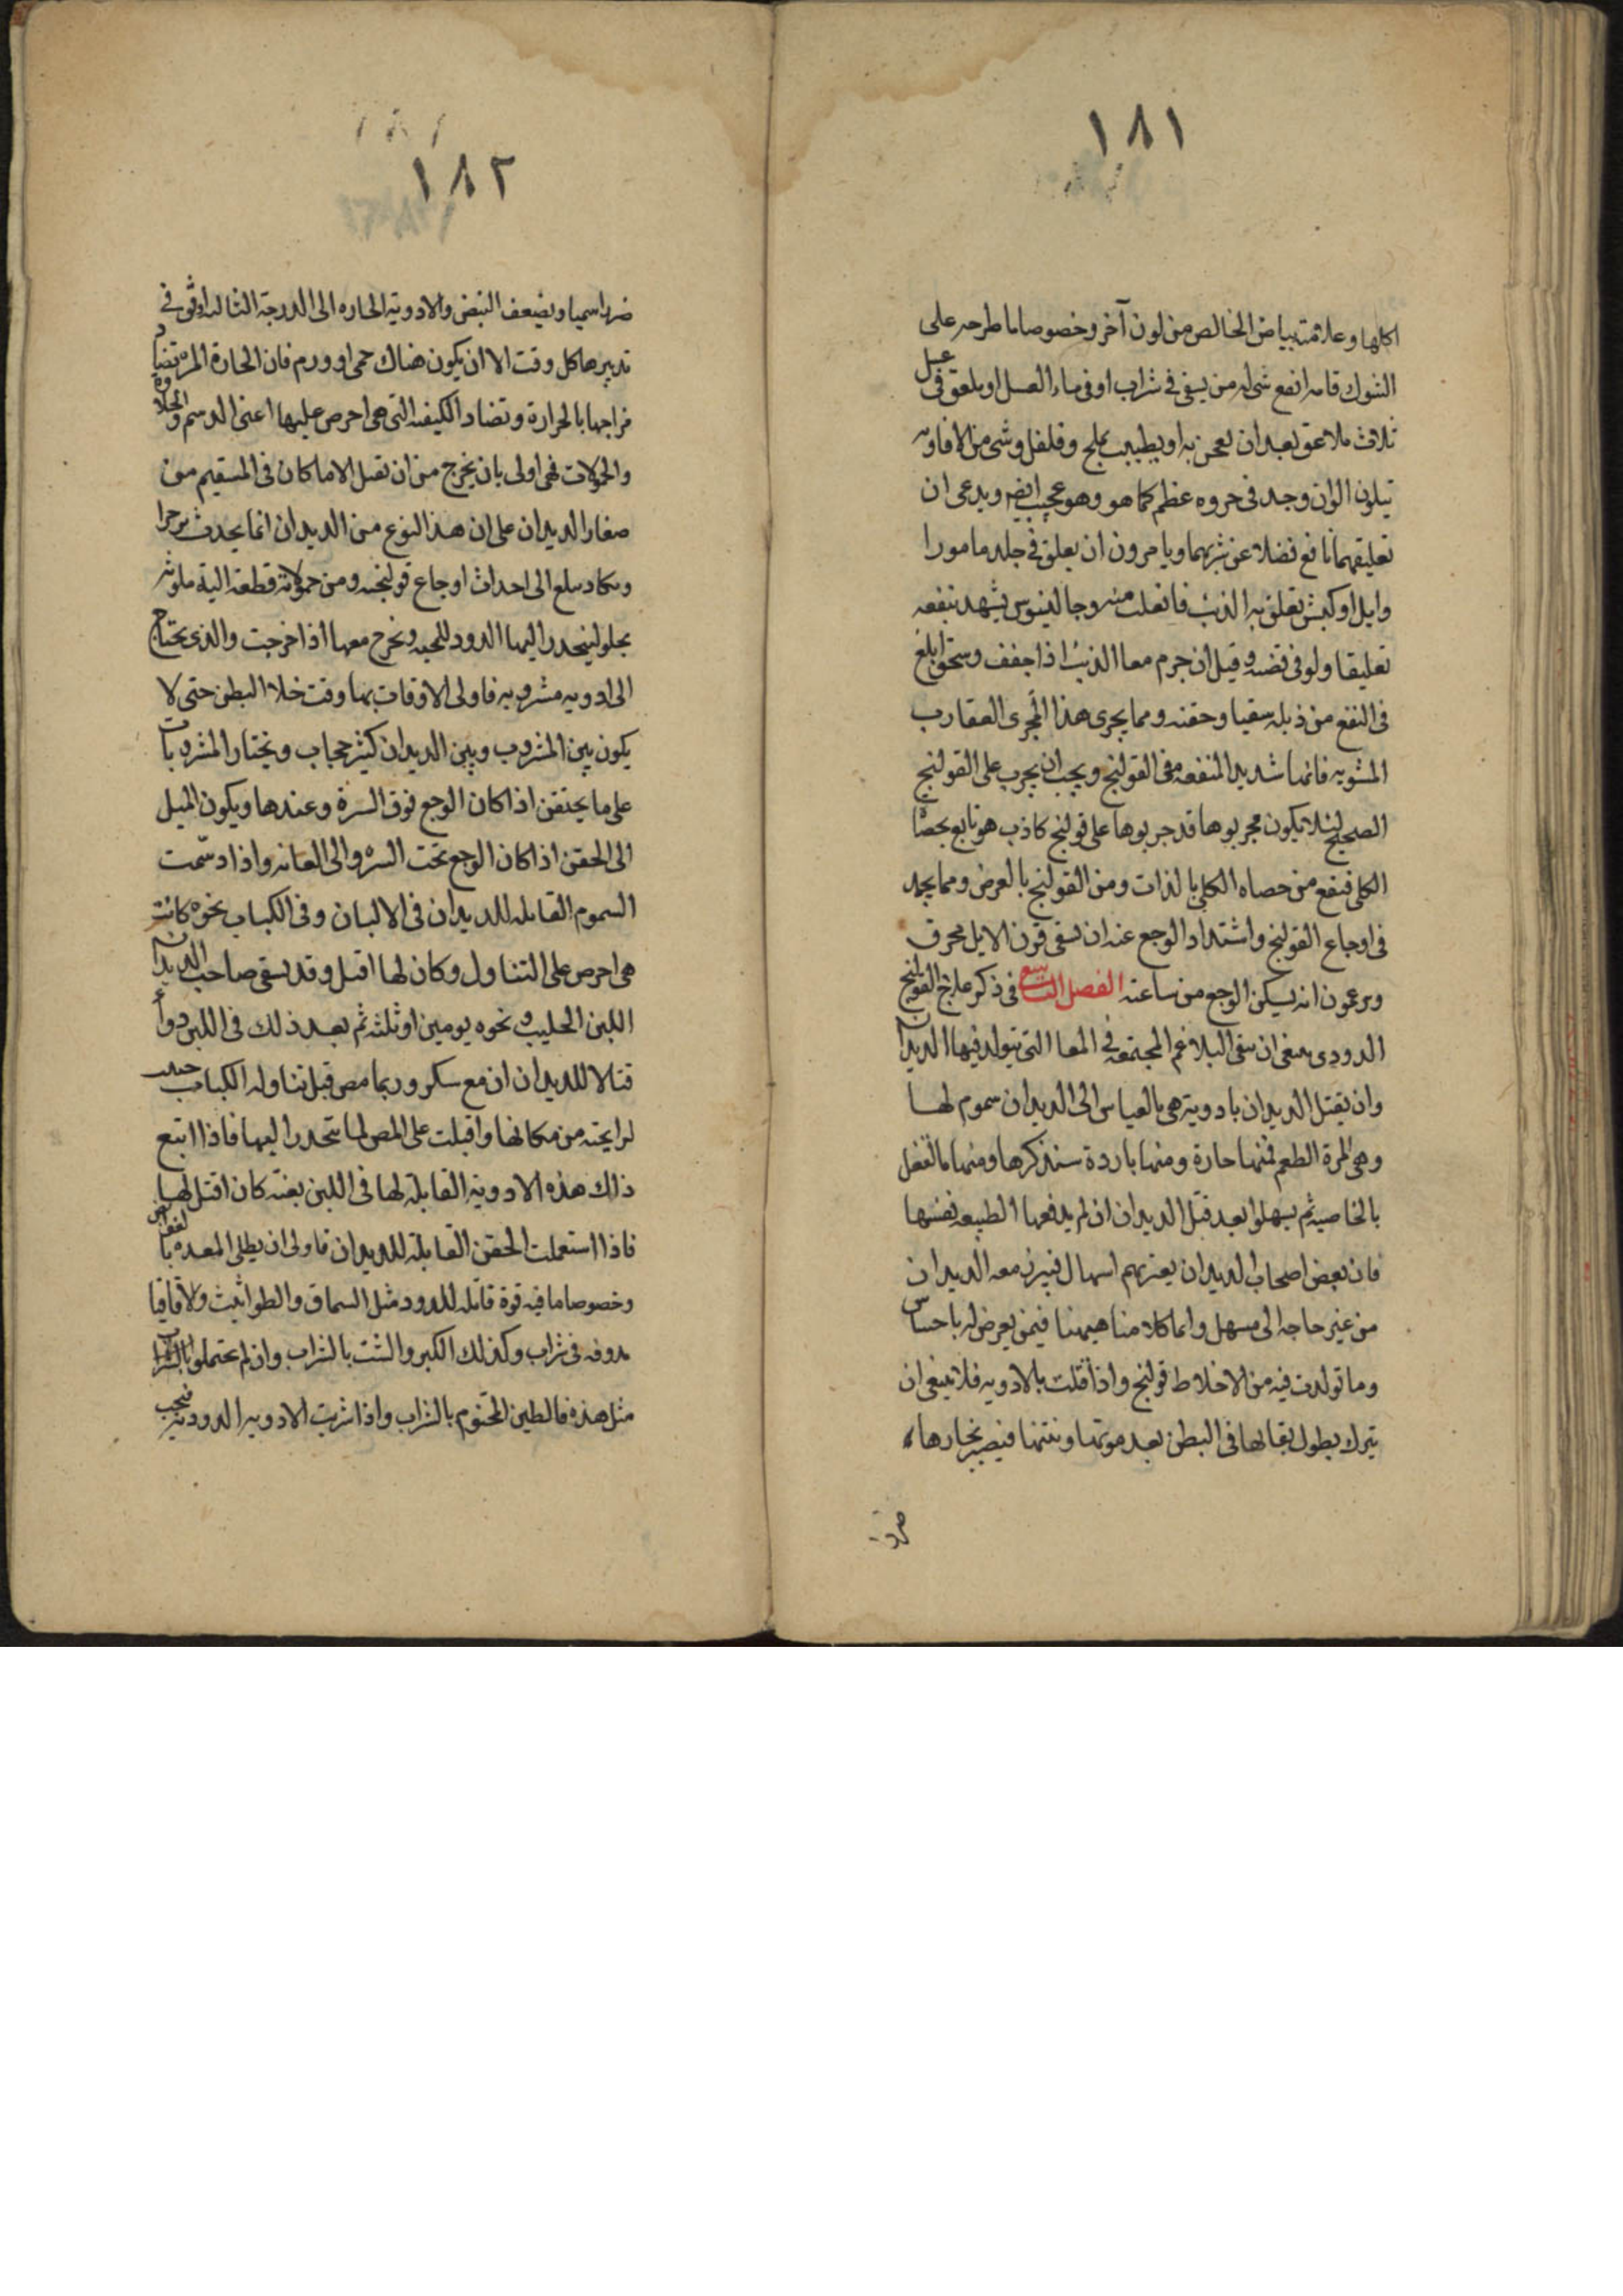 ١٨١
اكلها وعلامته بياض الخالص من لون آخر وخصوصا ما طرحه على
الشوك فانه انفع شى له من يسقى فى شراب او فى ماء العسل او يلعق فى عسل
ثلاث ملاعق بعد ان يعجن به او يطيب بملح وفلفل وشى من الافاويه
الوان وجد فى حروه عظم كما هو وهو عجيب ايضه ويدعى ان
تعليقهما نافع فضلا عن شربهما ويامرون ان يعلق فى جلد مامورا
وايل او كبش تعلق به الذئب فانفلت منه وجالينوس يشهد بنفعه
تعليقا ولو فى فضه وقيل ان جرم معا الذئب اذا جفف وسحق ابلغ
فى النفع من ذبله سقيا وحقنه ومما يجرى هذا المجرى العقارب
المشويه فانها شديد المنفعه فى القولنج ويجب ان يجرب على القولنج
الصحيح لئلا يكون مجربوها قد جربوها على قولنج كاذب هو تابع بحصاه
الكلى فينفع من حصاه الكلى بالذات ومن القولنج بالعرض ومما يحمد
فى اوجاع القولنج واشتداد الوجع عنه ان يسقى قرن الايل محرق
ويزعمون انه يسكن الوجع من ساعته الفصل التاسع فى ذكر علاج القولنج
الدودى ينبغى ان ينقى البلاغم المجتمعه فى المعا التى يتولد فيها الديدان
وان يقتل الديدان بادوية هى بالقياس الى الديدان سموم لها
وهى المرة الطعم فمنها حارة ومنها باردة سنذكرها ومنها ما تفعل
بالخاصيه ثم يسهلوا بعد قتل الديدان ان لم يدفعها الطبيعه نفسها
فان بعض اصحاب الديدان يعتريهم اسهال فيبرز معه الديدان
من غير حاجه الى مسهل وانما كلامنا هيهنا فيمن يعرض له باحتباس
وما تولدت فيه من الاخلاط قولنج واذا قتلت بالادويه فلا ينبغى ان
يترك بطول بقائها فى البطن بعد موتها ونتنها فيصير بخارها
ضرد
١٨١
١٨٢
ضررا سميا ويضعف النبض والادوية الحاره الى الدرجة الثالثه اوفق فى
تدبيرها كل وقت الا ان يكون هناك حمى او ورم فان الحارة المره تضاد
مزاجها بالحرارة وتضاد الكيفيه التى هى احرص عليها اعنى الدسم والحلاوه
والحمولات فهى اولى بان يخرج من ان تقتل الا ما كان فى المستقيم من
صغار الديدان على ان هذا النوع من الديدان انما يحدث
وتكاد تبلغ الى احداث اوجاع قولنجيه ومن حمولاته قطعة الية ملوثه
بحلو لينحدر اليها الدود للمحبه وتخرج معها اذا اخرجت والذى يحتاج
الى ادويه مشروبه فاولى الاوقات بها وقت خلا البطن حتى لا
يكون بين المشروب وبين الديدان كثير حجاب ويختار المشروبات
على ما يحتقن اذا كان الوجع فوق السرة وعندها ويكون الميل
الى الحقن اذا كان الوجع تحت السره والى العانه واذا دسمت
السموم القاتله للديدان فى الالبان وفى الكباب نحوه كانت
هى احرص على التناول وكان لها اقبل وقد يسقى صاحب الديدان
اللبن الحليب ونحوه يومين او ثلثه ثم بعد ذلك فى اللبن دواء
قتالا للديدان ان مع سكر وربما مص قبل تناوله الكباب
لرايحته من مكانها واقبلت على المص لما ينحدر اليها فاذا اتبع
ذلك هذه الادوية القاتله لها فى اللبن بغتة كان اقتل لها
فاذا استعملت الحقن القاتلة للديدان فاولى ان يطلى المعده بالقوابض
وخصوصا ما فيه قوة قاتله للدود مثل السماق والطراثيث والاقاقيا
مدوفه فى شراب وكذلك الكبر والشث بالشراب وان لم يحتملوا بالشراب
مثل هذه فالطين المختوم بالشراب واذا شربت الادويه الدوديه فيجب